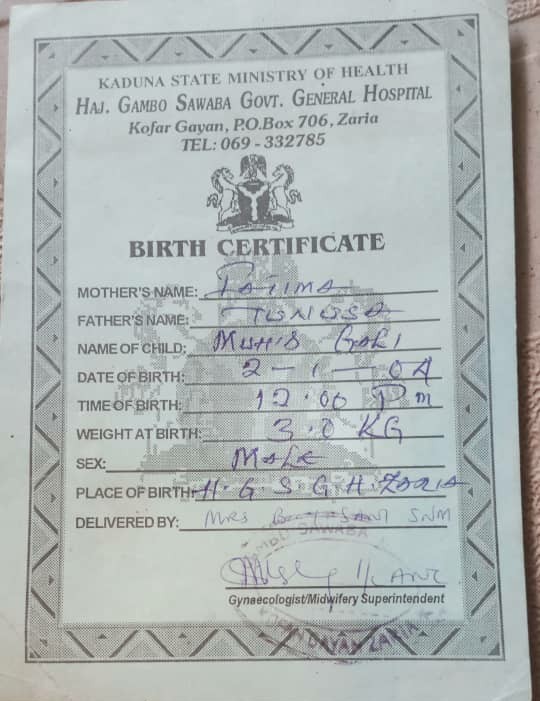 KADUNA STATE MINISTRY OF HEALTH
HAJ. GAMBO SAWABA GOVT. GENERAL HOSPITAL
Kofar Gayan, P.O.Box 706, Zaria
TEL: 069 - 332785
BIRTH CERTIFICATE
MOTHER'S NAME: Fatima
FATHER'S NAME:
NAME OF CHILD:
DATE OF BIRTH: 2 - 1 - 04
TIME OF BIRTH: 12.00 Pm
WEIGHT AT BIRTH: 3.0 KG
SEX: Male
PLACE OF BIRTH: H.G.S.G.H. Zaria
DELIVERED BY: MRS SNM
Gynaecologist/Midwifery Superintendent